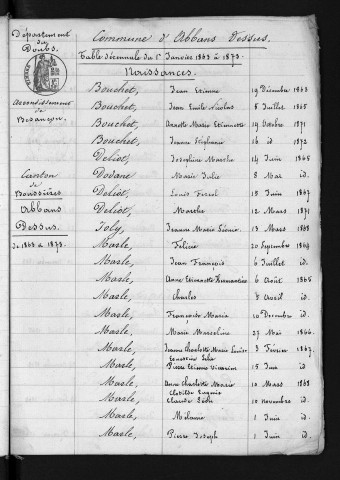 Département
du
Doubs.
Arrondissement
de
Besançon
Canton
de
Boussières
Abbans
Dessus.
de 1863 à 1873.
Commune d'Abbans Dessus.
Table décennale du 1er Janvier 1863 à 1873.
Naissances.
Bouchet, Jean Etienne 19 Décembre 1863
Bouchet, Jean Emile Nicolas 8 Juillet 1865
Bouchet, Annette Marie Etiennette 19 Octobre 1871
Bouchet, Jeanne Stéphanie 16 id 1872
Deliot, Joséphine Marthe 14 Juin 1865
Dodane, Marie Julie 8 Mai id.
Deliot, Louis Fériol 15 Juin 1867
Deliot, Marthe 12 Mars 1871
Joly, Jeanne Marie Léonie 13 Mars 1868
Masle, Félicie 20 Septembre 1864
Masle, Jean François 6 Juillet id.
Masle, Anne Etiennette Hermantine 6 Août 1865
Masle, Charles 8 Avril id.
Masle, François Marie 10 Décembre id.
Masle, Marie Marceline 27 Mai 1866.
Masle, Jeanne Charlotte Marie Louise 3 Février 1867.
Ernestine Julie
Masle, Pierre Etienne 15 Juin id.
Masle, Anne Charlotte Marie 10 Mars 1868
Clotilde Eugénie
Masle, Claude 10 novembre id.
Masle, Mélanie 1 Juin id.
Masle, Pierre Joseph 1 Juin id.